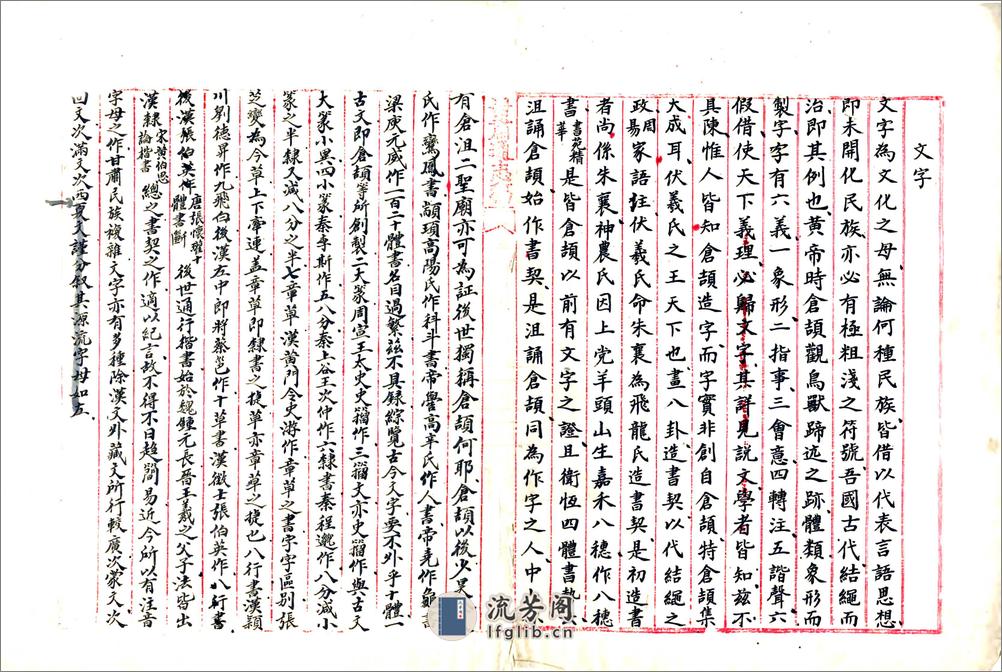 文字
文字為文化之母無論何種民族皆借以代表言語思想
即未開化民族亦必有極粗淺之符號吾國古代結繩而
治即其例也黃帝時倉頡觀鳥獸蹄迒之跡體類象形而
製字字有六義一象形二指事三會意四轉注五諧聲六
假借使天下義理必歸文字其詳見說文學者皆知茲不
具陳惟人皆知倉頡造字而字實非創自倉頡特倉頡集
大成耳伏羲氏之王天下也畫八卦造書契以代結繩之
政周易家語註伏羲氏命朱襄為飛龍氏造書契是初造書
者尚係朱襄神農氏因上党羊頭山生嘉禾八穗作八穗
書書苑精華是皆倉頡以前有文字之證且衛恆四體書勢
沮誦倉頡始作書契是沮誦倉頡同為作字之人中
有倉沮二聖廟亦可為証後世獨稱倉頡何耶倉頡以後少昊
氏作鸞鳳書顓頊高陽氏作科斗書帝嚳高辛氏作人書帝堯作龜
梁庾元威作一百二十體書名目過繁茲不具錄綜覽古今文字要不外乎十體一
古文即倉頡等所創製二大篆周宣王太史史籀作三籀文亦史籀作與古文
大篆小異四小篆秦李斯作五八分秦上谷王次仲作六隸書秦程邈作八分減小
篆之半隸又減八分之半七章草漢黃門令史游作章草之書字字區别張
芝變為今草上下牽連蓋章草即隸書之捷草亦章草之捷也八行書漢潁
川劉德昇作九飛白後漢左中郎將蔡邕作十草書漢徵士張伯英作八行書
後漢張伯英作唐張懷瓘十體書斷後世通行楷書始於魏鍾元長晉王羲之父子法皆出
漢隸宋黃伯思論楷書總之書契之作適以紀言故不得不日趨簡易近今所以有注音
字母之作甘肅民族複雜文字亦有多種除漢文外藏文所行較廣次蒙文次
回文次滿文次西夏文謹分叙其源流字母如左
流芳阁
lfglib.cn